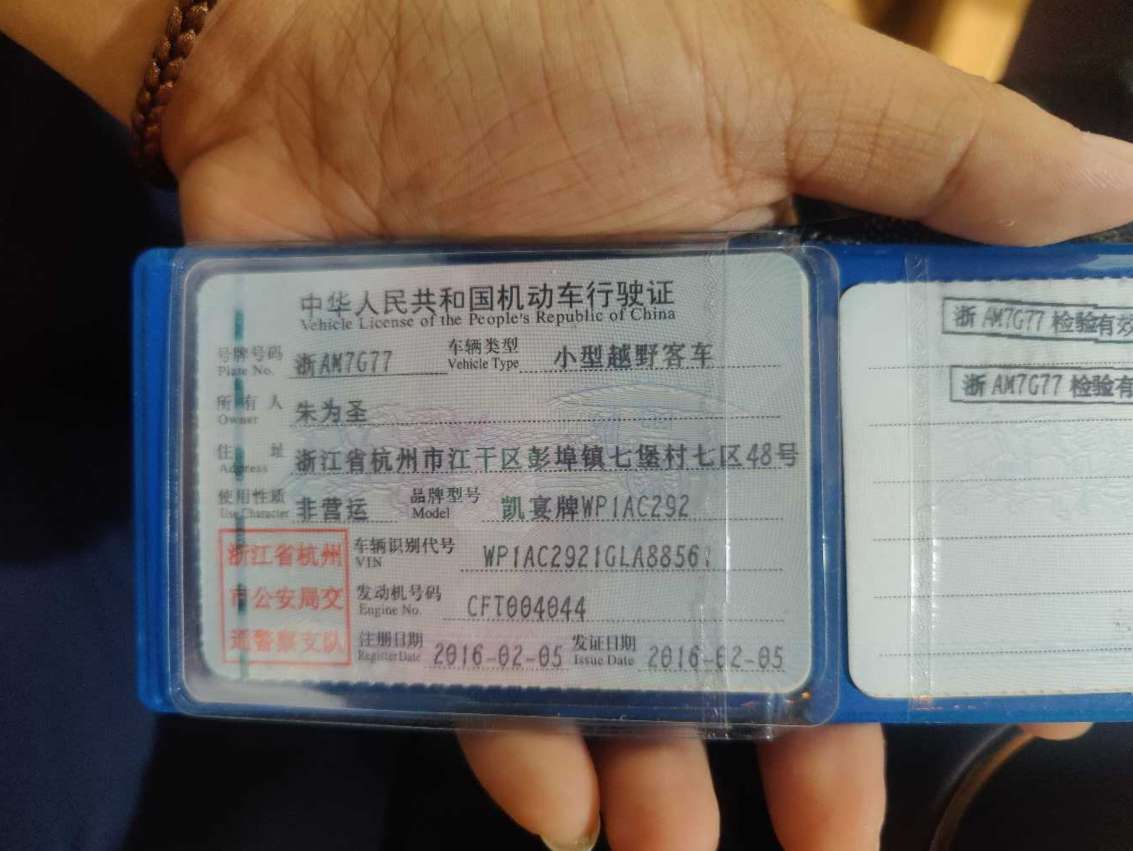 中华人民共和国机动车行驶证
Vehicle License of the People's Republic of China
号牌号码 浙AM7G77 车辆类型 小型越野客车
Plate No. Vehicle Type
所有人 朱为圣
Owner
住址 浙江省杭州市江干区彭埠镇七堡村七区48号
Address
使用性质 非营运 品牌型号 凯宴牌WP1AC292
Use Character Model
浙江省杭州
市公安局交
通警察支队
车辆识别代号 WP1AC2921GLA8856
VIN
发动机号码 CFT004044
Engine No.
注册日期 2016-02-05 发证日期 2016-02-05
Register Date Issue Date
浙AM7G77 检验有效
浙AM7G77 检验有